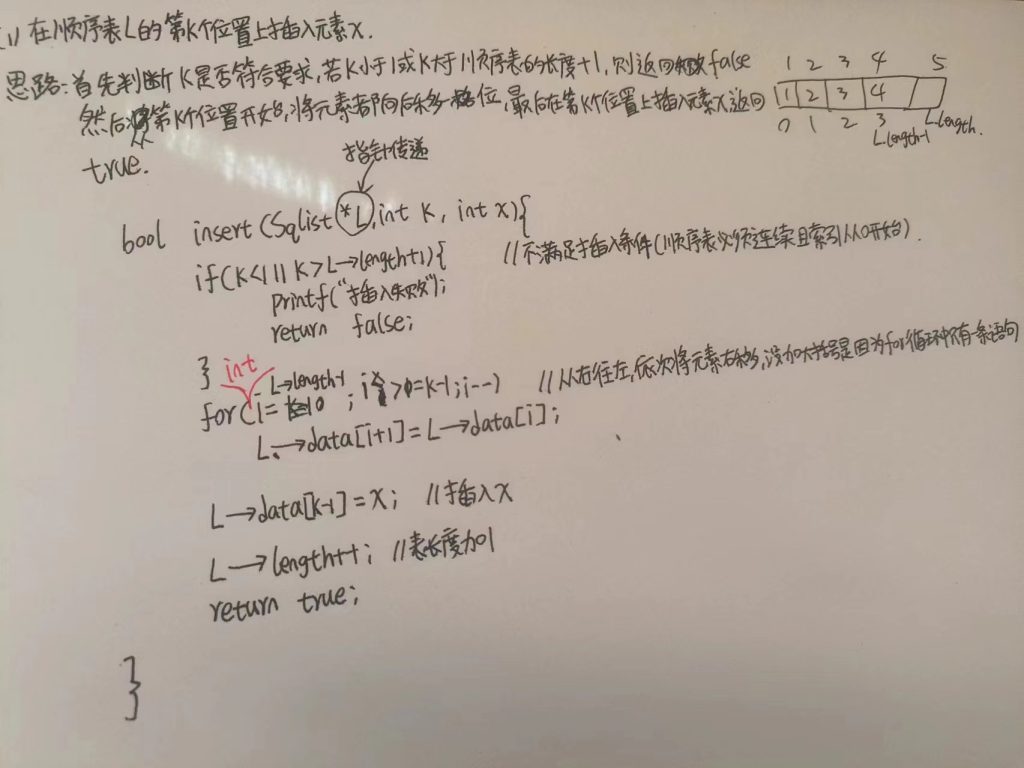 (1) 在顺序表L的第K个位置上插入元素x.
思路:首先判断K是否符合要求,若K小于1或K大于顺序表的长度+1,则返回失败false
然后从第K个位置开始,将元素都向后移一格位,最后在第K个位置上插入元素x返回
true.
1 2 3 4 5
1 2 3 4
0 1 2 3 L.length.
L.length-1
指针传递
bool insert(Sqlist *L,int k, int x){
if(K<1 || K>L→length+1){ //不满足插入条件(顺序表必须连续且索引从0开始).
printf("插入失败");
return false;
}
int
for(i=L→length-1;i>=k-1;i--) //从右往左,依次将元素右移,没加大括号是因为for循环中只有一条语句
L→data[i+1]=L→data[i];
L→data[k-1]=x; //插入x
L→length++; //表长度加1
return true;
}